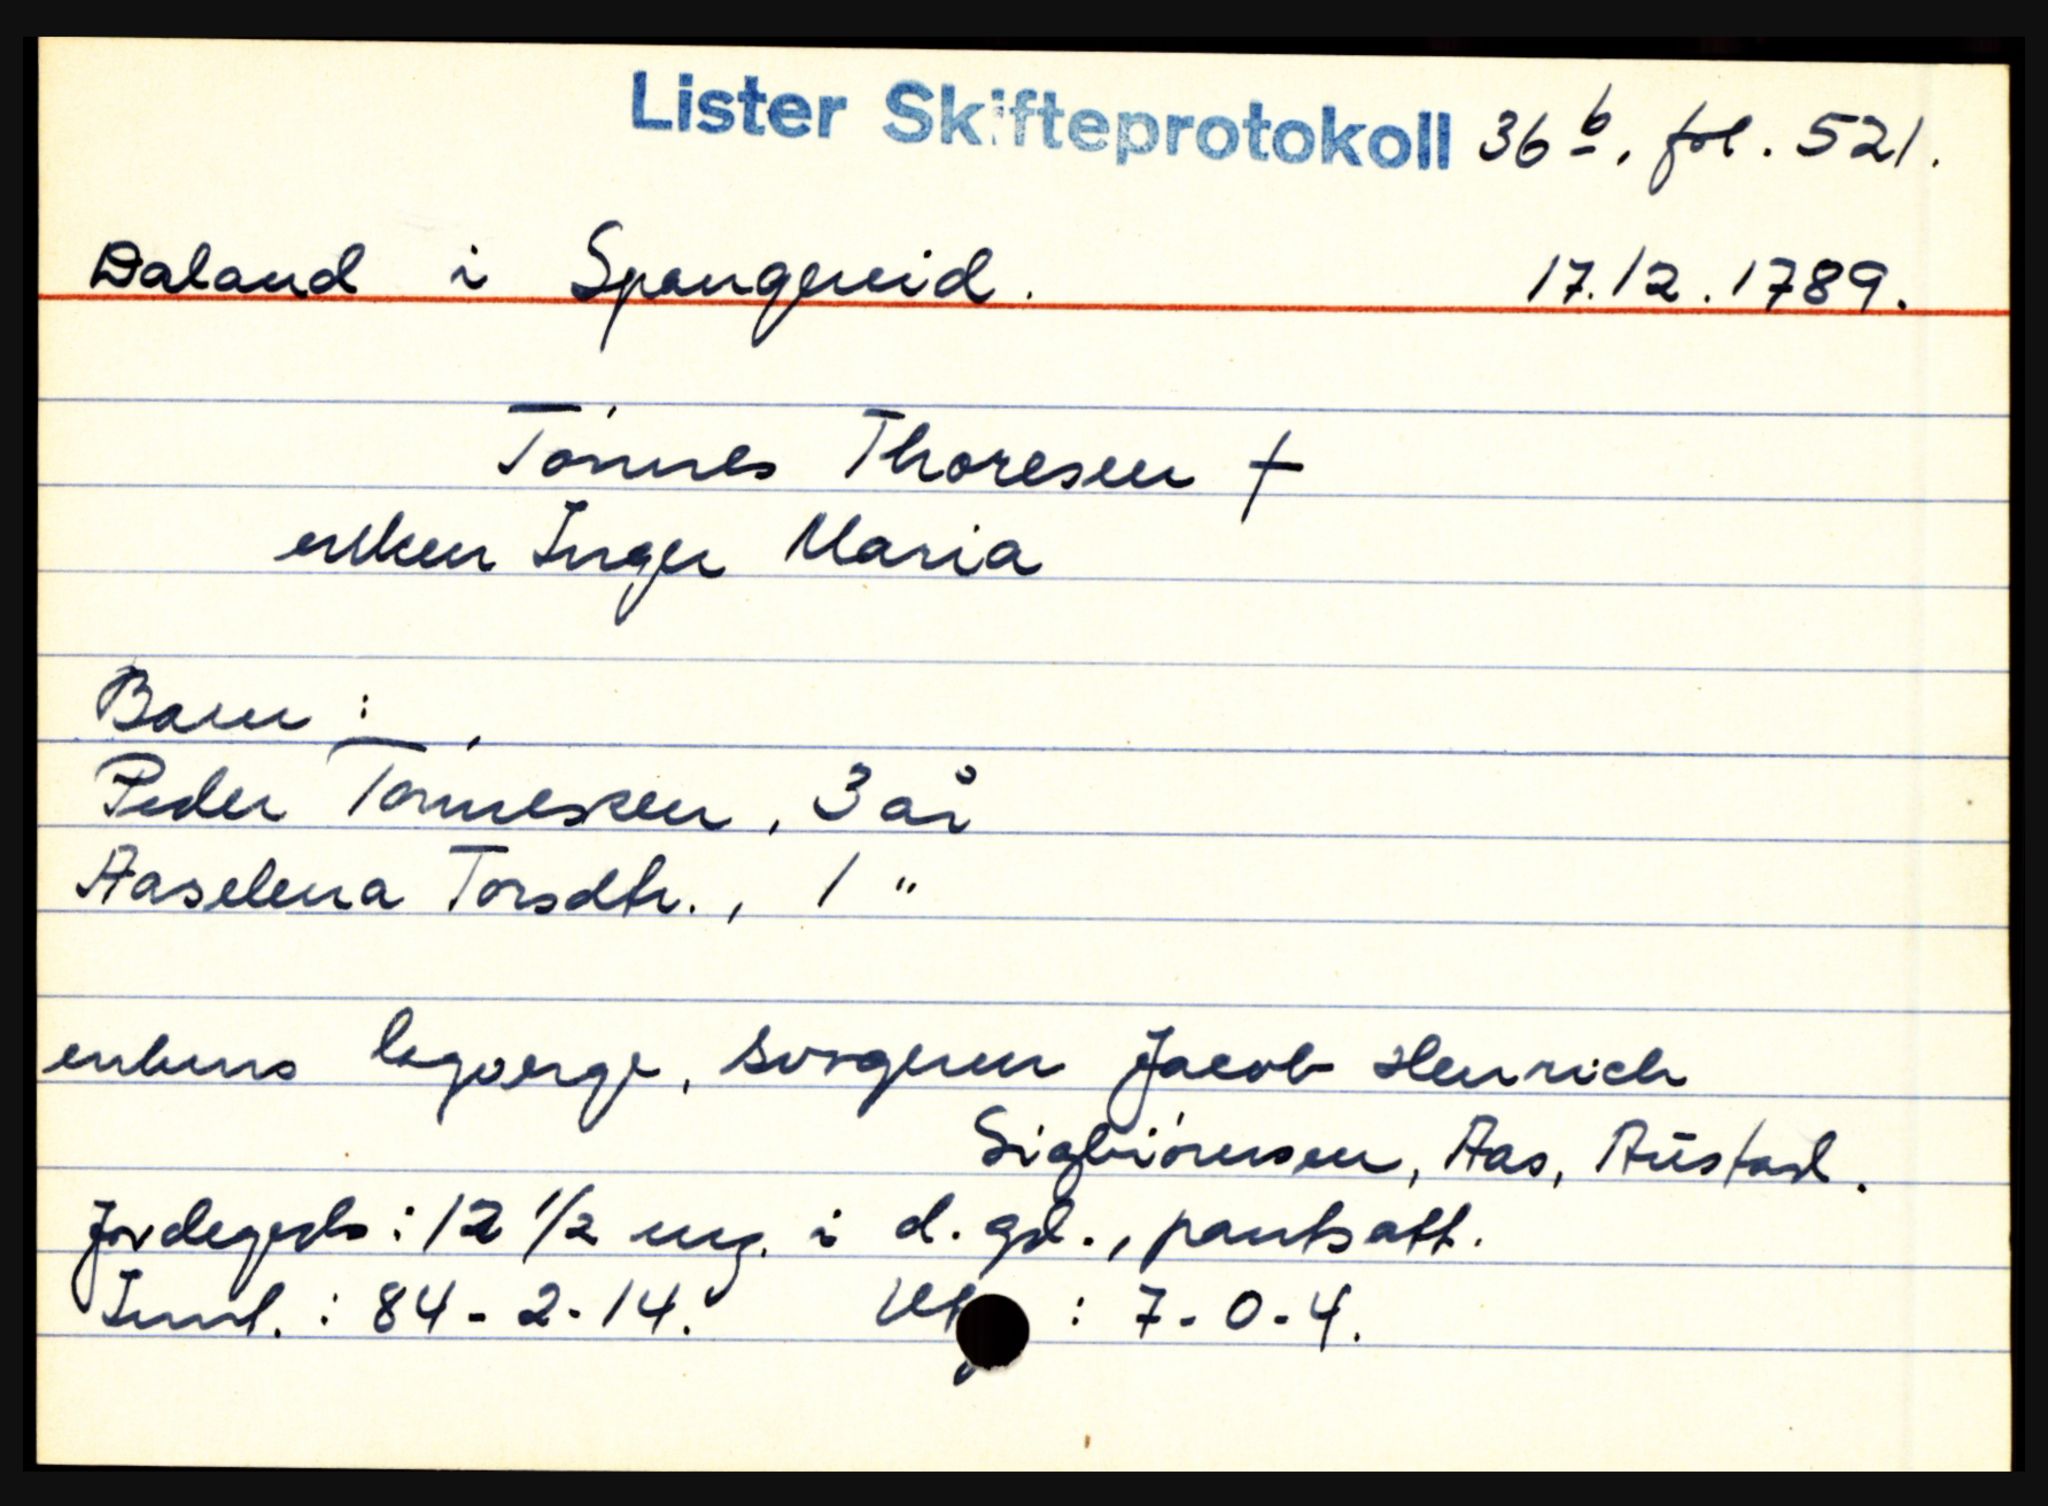 Lister Skifteprotokoll 36 b, fol. 521.
Daland i Spangereid. 17.12.1789.
Tönnes Thoresen †
enken Inger Maria
Barn :
Peder Tönnessen, 3 år
Aaselena Torsdtr., 1 "
enkens lagverge, svogeren Jacob Henrich
Sigbiörnsen, Aas, Austad.
Jordegods : 12 1/2 mg. i d. gd., pantsatt.
Innt. : 84 - 2 - 14. : 7 - 0 - 4.